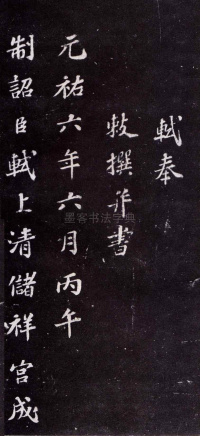 軾奉
敕撰并書
元祐六年六月丙午
制詔臣軾上清儲祥宮成
墨客书法字典